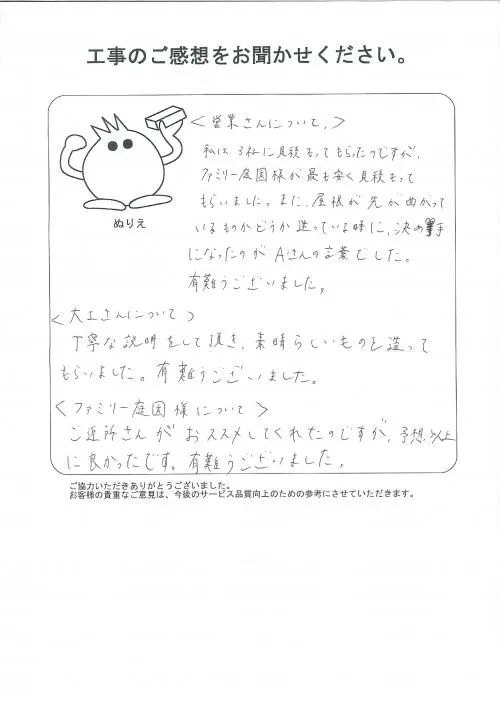 工事のご感想をお聞かせください。
<営業さんについて,>
私は3社に見積もってもらったのですが,
ファミリー庭園様が最も安く見積もって
もらいました。また,屋根が先が曲がって
いるものかどうか迷っている時に,決め手
になったのがAさんの言葉でした。
有難うございました。
ぬりえ
<大工さんについて>
丁寧な説明をして頂き,素晴らしいものを造って
もらいました。有難うございました。
<ファミリー庭園様について>
ご近所さんがおススメしてくれたのですが,予想以上
に良かったです。有難うございました。
ご協力いただきありがとうございました。
お客様の貴重なご意見は、今後のサービス品質向上のための参考にさせていただきます。